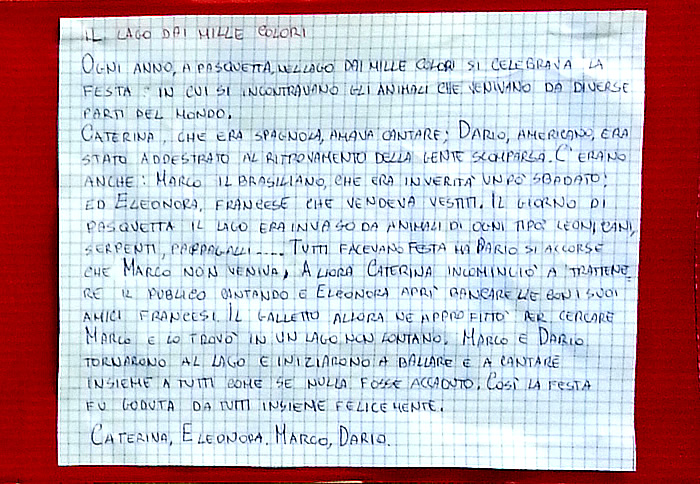 IL LAGO DAI MILLE COLORI
OGNI ANNO, A PASQUETTA, NEL LAGO DAI MILLE COLORI SI CELEBRAVA LA
FESTA IN CUI SI INCONTRAVANO GLI ANIMALI CHE VENIVANO DA DIVERSE
PARTI DEL MONDO.
CATERINA, CHE ERA SPAGNOLA, AMAVA CANTARE; DARIO, AMERICANO, ERA
STATO ADDESTRATO AL RITROVAMENTO DELLA GENTE SCOMPARSA. C'ERANO
ANCHE: MARCO IL BRASILIANO, CHE ERA IN VERITÀ UN PÒ SBADATO;
ED ELEONORA, FRANCESE CHE VENDEVA VESTITI. IL GIORNO DI
PASQUETTA IL LAGO ERA INVASO DA ANIMALI DI OGNI TIPO: LEONI, CANI,
SERPENTI, PAPPAGALLI..... TUTTI FACEVANO FESTA MA DARIO SI ACCORSE
CHE MARCO NON VENIVA, ALLORA CATERINA INCOMINCIÒ A TRATTENE
RE IL PUBLICO CANTANDO E ELEONORA APRÌ BANCARELLE CON I SUOI
AMICI FRANCESI. IL GALLETTO ALLORA NE APPROFITTÒ PER CERCARE
MARCO E LO TROVÒ IN UN LAGO NON LONTANO. MARCO E DARIO
TORNARONO AL LAGO E INIZIARONO A BALLARE E A CANTARE
INSIEME A TUTTI COME SE NULLA FOSSE ACCADUTO. COSÌ LA FESTA
FU GODUTA DA TUTTI INSIEME FELICEMENTE.
CATERINA, ELEONORA, MARCO, DARIO.